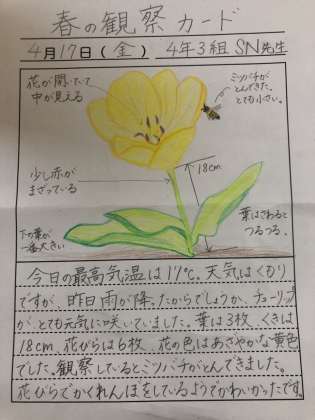 春の観察カード
4月17日(金) 4年3組 SN先生
花が開いてて
中が見える
ミツバチが
とんできた。
とても小さい。
18cm
少し赤が
まざっている
下の葉が
一番大きい
葉はさわると
つるつる。
今日の最高気温は17℃。天気はくもり
ですが、昨日雨が降ったからでしょうか、チューリップ
が、とても元気に咲いていました。葉は3枚、くきは
18cm、花びらは6枚、花の色はあざやかな黄色
でした。観察しているとミツバチがとんできました。
花びらでかくれんぼをしているようでかわいかったです。